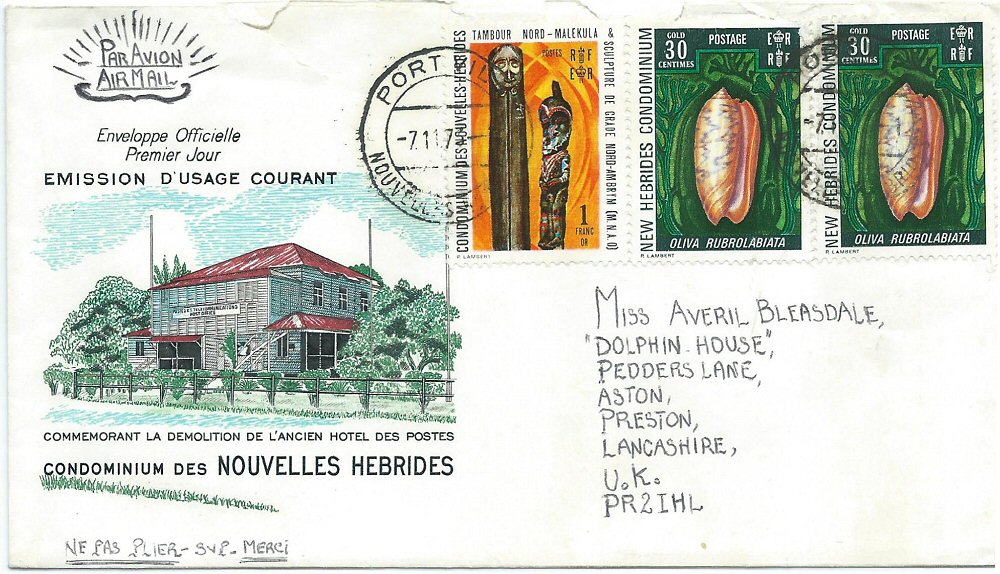 PAR AVION
AIR MAIL
Enveloppe Officielle
Premier Jour
EMISSION D'USAGE COURANT
POSTES ET TELECOMMUNICATIONS
POST OFFICE
COMMEMORANT LA DEMOLITION DE L'ANCIEN HOTEL DES POSTES
CONDOMINIUM DES NOUVELLES HEBRIDES
NE PAS PLIER - SVP - MERCI
PORT
-7.11.7
NOUVELLES
CONDOMINIUM DES NOUVELLES-HEBRIDES
TAMBOUR NORD-MALEKULA
& SCULPTURE DE GRADE NORD-AMBRYM (M.N.A.O)
POSTES
RF
EIIR
1
FRANC
OR
P. LAMBERT
NEW HEBRIDES CONDOMINIUM
GOLD
30
CENTIMES
POSTAGE
EIIR
RF
OLIVA RUBROLABIATA
P. LAMBERT
NEW HEBRIDES CONDOMINIUM
GOLD
30
CENTIMES
POSTAGE
EIIR
RF
OLIVA RUBROLABIATA
P. LAMBERT
MISS AVERIL BLEASDALE,
"DOLPHIN-HOUSE",
PEDDERS LANE,
ASTON,
PRESTON,
LANCASHIRE,
U.K.
PR2 1HL